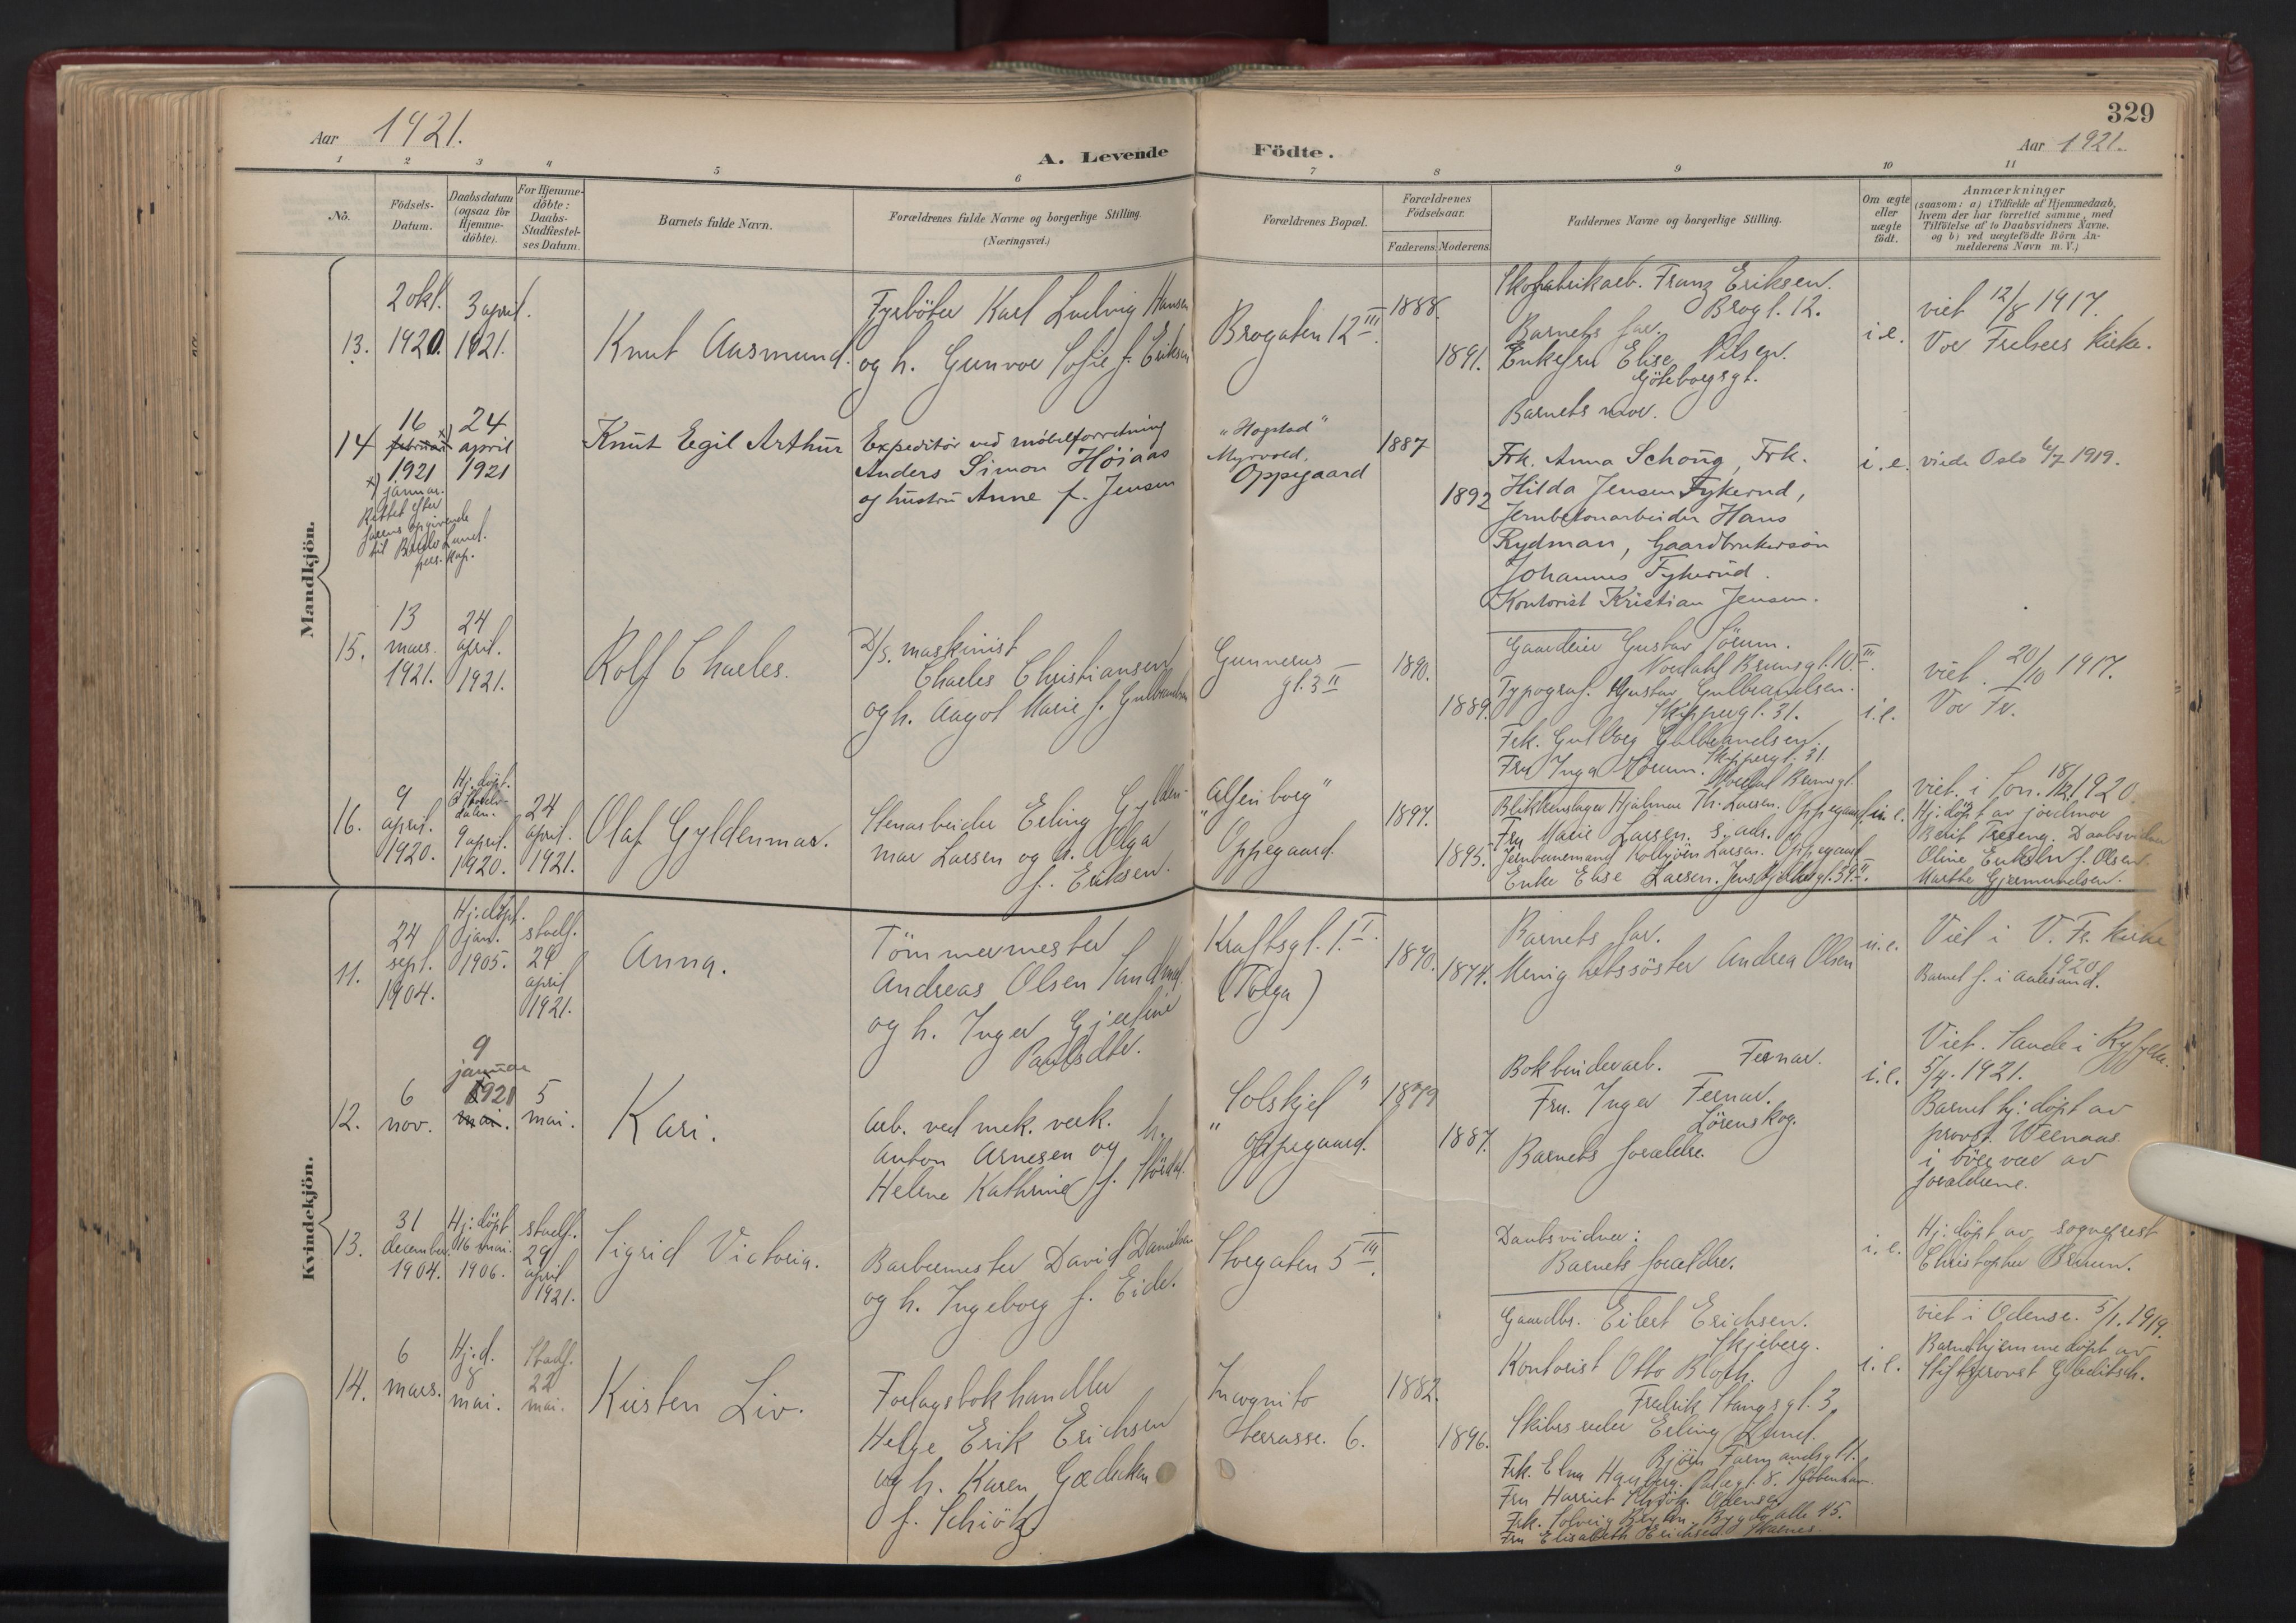 329
Aar 1921.
A. Levende Födte.
Aar 1921.
1 2 3 4 5 6 7 8 9 10 11
No.
Födsels-
Datum.
Daabsdatum
(ogsaa for
Hjemme-
döbte).
For Hjemme-
döbte:
Daabs-
Stadfæstel-
ses Datum.
Barnets fulde Navn.
Forældrenes fulde Navne og borgerlige Stilling.
(Næringsvei.)
Forældrenes Bopæl.
Forældrenes
Födselsaar.
Faderens. Moderens.
Faddernes Navne og borgerlige Stilling.
Om ægte
eller
uægte
födt.
Anmærkninger
(saasom: a) i Tilfælde af Hjemmedaab,
hvem der har forrettet samme, med
Tilföielse af to Daabsvidners Navne.
og b) ved uægtefödte Börn An-
melderens Navn m. V.)
Mandkjön.
13.
2 okt.
1920.
3 april.
1921.
Knut Aasmund.
Fyrböter Karl Ludvig Hansen
og h. Gunvor Sofie f. Eriksen
Brogaten 12 III.
1888.
1891.
Skofabrikarb. Franz Eriksen.
Brogt. 12.
Barnets far.
Enkefru Elise Nilsen.
Göteborgsgt.
Barnets mor.
i.e.
viet 12/8 1917.
Vor Frelsers kirke.
14
16
februar x)
1921
x) januar.
Rettet efter
farens opgivende
til
24
april
1921
Knut Egil Arthur
Expeditör ved möbelforretning
Anders Simon Höiaas
og hustru Anne f. Jensen
"Hogstad"
Myrvold.
Oppegaard
1887
1892
Frk. Anna Schong, Frk.
Hilda Jensen Fykerud,
Jernbetonarbeider Hans
Rydman, Gaardbrukersön
Johannes Fykerud.
Kontorist Kristian Jensen.
i.e.
viede Oslo 6/7 1919.
15.
13
mars.
1921.
24
april.
1921.
Rolf Charles.
D/s. maskinist
Charles Christiansen
og h. Aagot Marie f. Gulbrandsen
Gunnerus
gt. 3 II
1890.
1889.
Gaardeier Gustav Sörum.
Nordahl Brunsgt. 10 III.
Typograf. Gustav Gulbrandsen.
Skippergt. 31.
Frk. Gulborg Gulbrandsen
Skippergt. 31.
Fru Inga Sörum.
Nordahl Brunsgt.
i.e.
viet. 20/10 1917.
Vor Fr.
16.
9
april.
1920.
Hj. döpt.
9 april.
1920.
24
april.
1921.
Olaf Gyldenmar.
Stenarbeider Erling Gylden-
mar Larsen og h. Olga
f. Eriksen.
"Alfenborg"
Oppegaard.
1897.
1895.
Blikkenslager Hjalmar Th. Larsen. Oppegaard.
Fru Marie Larsen. s. ads.
Jernbanemand Kolbjörn Larsen. Oppegaard
Enke Elise Larsen.
Hj. döpt av jordmor
Berit Treseng. Daabsvidner
Oline Eriksen f. Olsen
Marthe Gjermundsen.
Kvindekjön.
11.
24
sept.
1904.
Hj. döpt.
jan.
1905.
stadf.
29
april
1921.
Anna.
Tömmermester
Andreas Olsen
og h. Inger Gjertine
Paulsdtr.
Kraftsgt. 1 I.
(Tolga)
1870.
1874.
Barnets far.
Menighetssöster Andrea Olsen
u.e.
Viet i V. Fr. kirke
1920
Barnet f. i Aalesund.
12.
6
nov.
9
januar
1921
mai.
5
mai.
Kari.
Arb. ved mek. verk.
Anton Arnesen og h.
Helene Kathrine f.
"Solskjel"
Oppegaard.
1879
1887.
Bokbinderarb. Fernar.
Fru. Inger Fernar.
Lörenskog.
Barnets forældre.
i.e.
Viet. Sande i Ryfylke.
5/4. 1921.
Barnet hj. döpt av
provst
i nærvær av
forældrene.
13.
31
december.
1904.
Hj. döpt
16 mai.
1906.
stadf.
29
april
1921.
Sigrid Victoria.
Barbermester David Danielsen
og h. Ingeborg f. Eide.
Storgaten 5 III.
Daabsvidner:
Barnets forældre.
i.e.
Hj. döpt av sogneprest
Christopher Bruun.
14.
6
mars.
Hj. d.
8
mai.
Stadf.
22
mai.
Kirsten Liv.
Forlagsbokhandler
Helge Erik Erichsen
og h. Karen Gædeken
f. Schiötz
Incognito
Terrasse. 6.
1882.
1896.
Gaardbr. Eilert Erichsen.
Skjeberg.
Kontorist Otto Bloth.
Fredrik Stangsgt. 3.
Skibsreder Erling Lund.
Björn Farmandsgt. 11.
Frk. Elna
Fru Harriet Schiötz. Odense
Frk. Solveig
Fru Elisabeth Erichsen
i.e.
viet i Odense. 5/1. 1919.
Barnet hjemmedöpt av
Stiftsprovst Gleditsch.